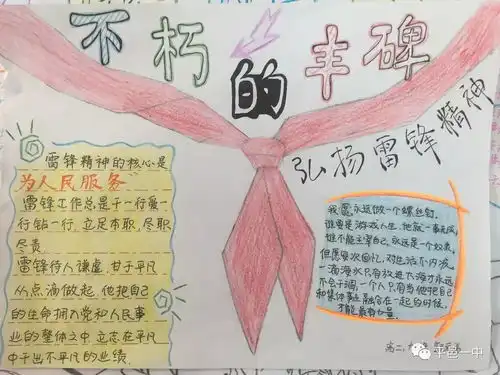 不朽的丰碑
弘扬雷锋精神
雷锋精神的核心是
为人民服务
雷锋工作总是干一行爱一
行钻一行，立足本职，尽职
尽责。
雷锋待人谦虚，甘于平凡
从点滴做起，他把自己
的生命拥入党和人民事
业的整体之中，立志在平凡
中干出不平凡的业绩
我愿永远做一个螺丝钉。
谁要是游戏人生，他就一事无成，
谁不能主宰自己，永远是一个奴隶。
但愿每次回忆，对生活不内疚。
一滴海水只有放进大海才永远
不会干涸，一个人只有当他把自己
和集体事业融合在一起的时候，
才能最有力量。
高二、
平邑一中